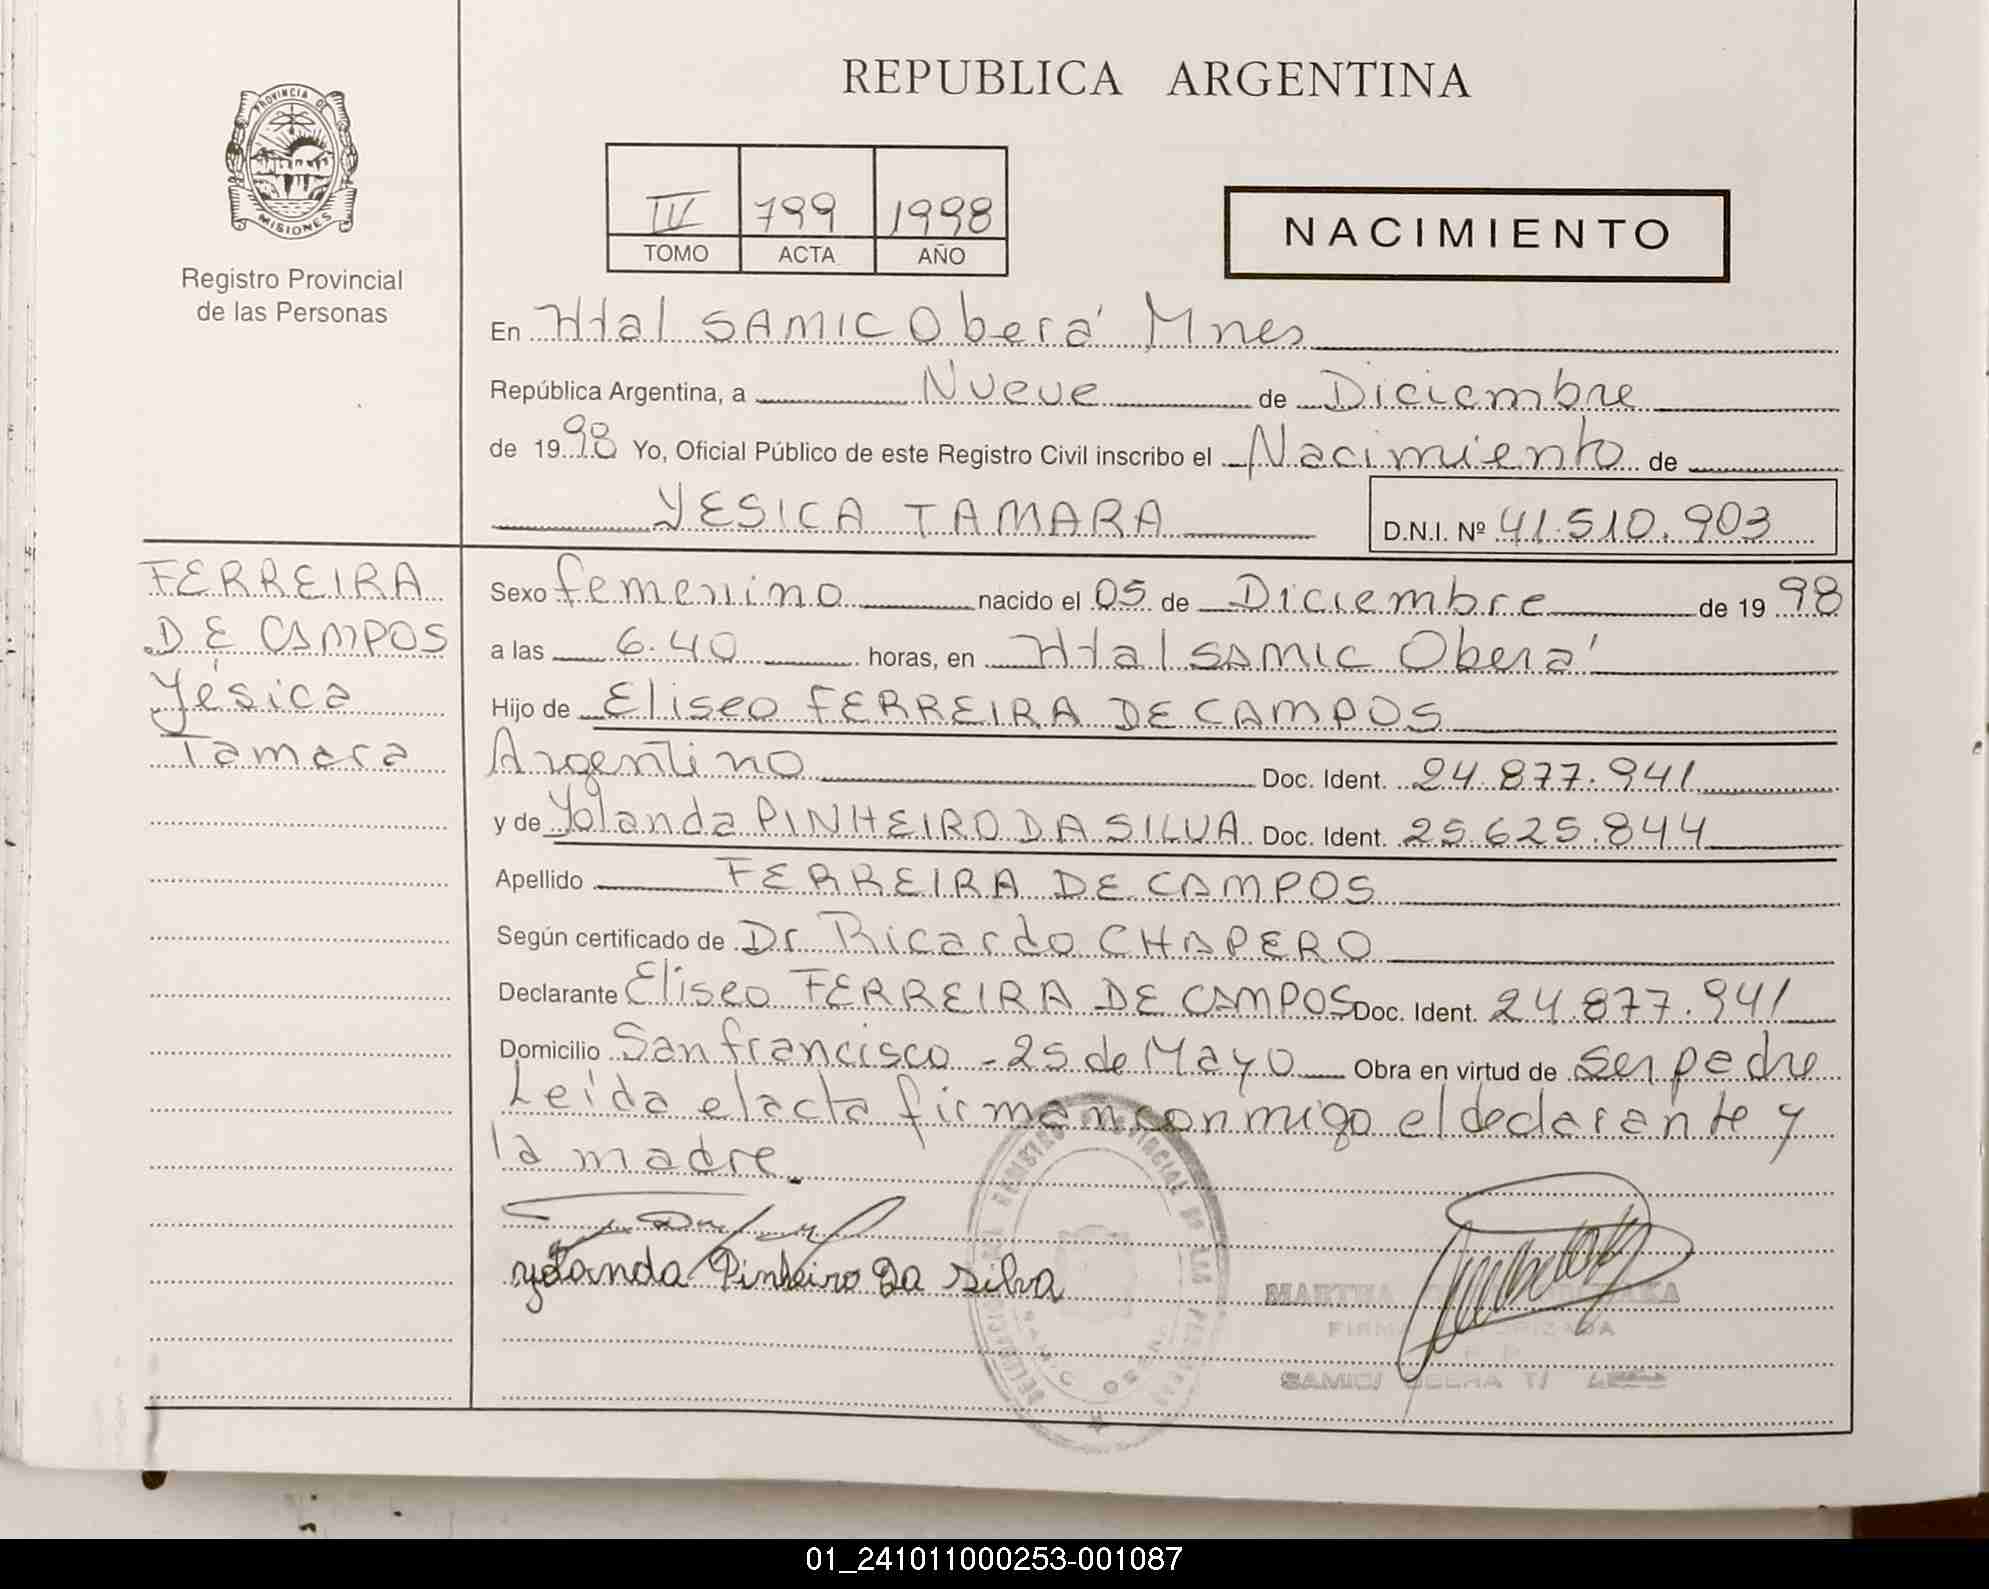 REPUBLICA ARGENTINA
PROVINCIA DE
MISIONES
Registro Provincial
de las Personas
IV 799 1998
TOMO ACTA AÑO
NACIMIENTO
En Htal SAMIC Oberá Mnes
República Argentina, a Nueve de Diciembre
de 1998 Yo, Oficial Público de este Registro Civil inscribo el Nacimiento de
YESICA TAMARA D.N.I. Nº 41.510.903
FERREIRA
DE CAMPOS
Yésica
Tamara
Sexo femenino nacido el 05 de Diciembre de 1998
a las 6.40 horas, en Htal SAMIC Oberá
Hijo de Eliseo FERREIRA DE CAMPOS
Argentino Doc. Ident. 24.877.941
y de Yolanda PINHEIRO DA SILVA Doc. Ident. 25.625.844
Apellido FERREIRA DE CAMPOS
Según certificado de Dr. Ricardo CHAPERO
Declarante Eliseo FERREIRA DE CAMPOS Doc. Ident. 24.877.941
Domicilio San francisco - 25 de Mayo Obra en virtud de ser padre
Leída el acta firman conmigo el declarante y
la madre.
Yolanda Pinheiro Da Silva
MARTHA
SAMIC/ OBERA
01_241011000253-001087